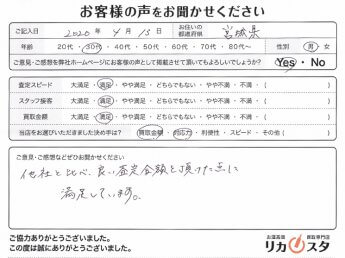 お客様の声をお聞かせください
ご記入日 2020年 4月 15日 お住いの都道府県 宮城県
年齢 20代・30代・40代・50代・60代・70代・80代〜 性別 男・女
ご意見・ご感想を弊社ホームページにお客様の声として掲載させて頂いてもよろしいでしょうか? Yes・No
査定スピード 大満足・満足・やや満足・どちらでもない・やや不満・不満・( )
スタッフ接客 大満足・満足・やや満足・どちらでもない・やや不満・不満・( )
買取金額 大満足・満足・やや満足・どちらでもない・やや不満・不満・( )
当店をお選びいただきました決め手は? 買取金額・対応力・利便性・スピード・その他( )
ご意見・ご感想などぜひお聞かせください
他社と比べ、良い査定金額を頂けた点に
満足しています。
ご協力ありがとうございました。
この度は誠にありがとうございました。
お酒高価買取専門店
リカスタ